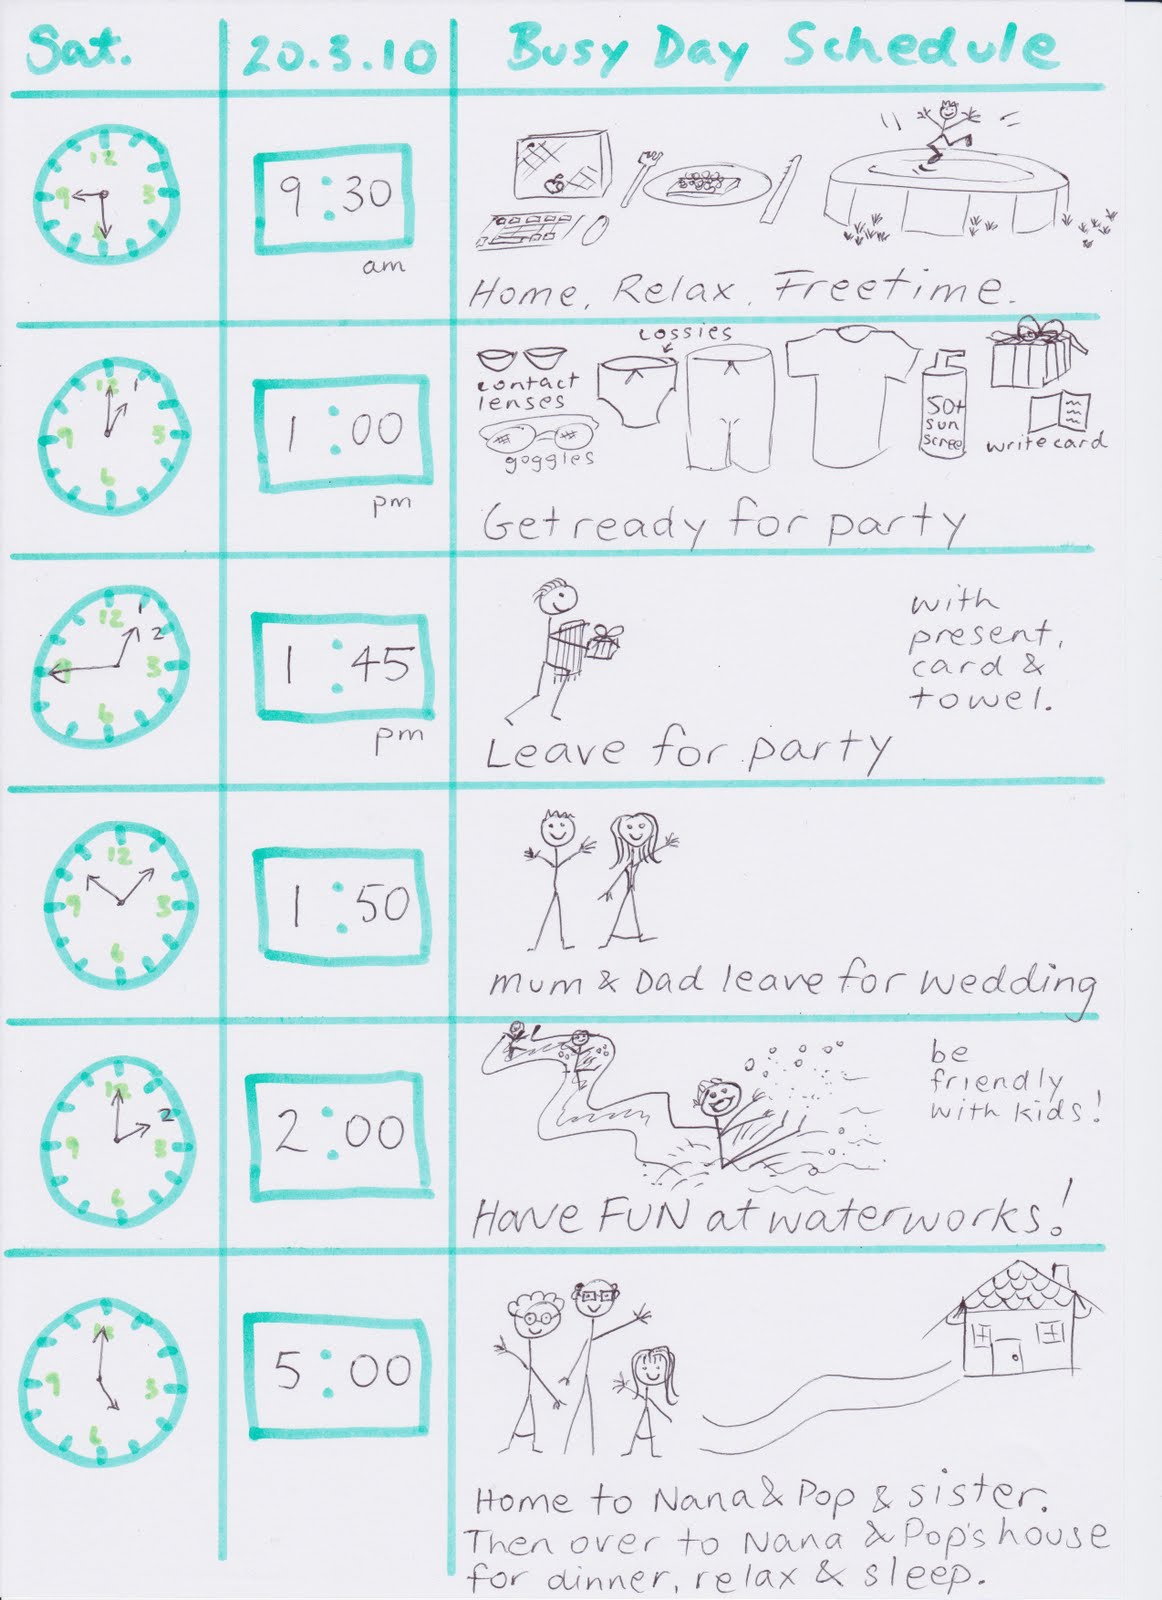 Sat. 20.3.10 Busy Day Schedule
12
9 3
6
9:30
am
Home, Relax, Freetime.
12 1
9 3
6
1:00
pm
cossies
contact
lenses
goggles
50+
sun
scree
write card
Get ready for party
12 1
2
9 3
6
1:45
pm
with
present,
card &
towel.
Leave for party
12
9 3
6
1:50
Mum & Dad leave for wedding
12
2
9 3
6
2:00
be
friendly
with kids!
Have FUN at waterworks!
12
9 3
6
5:00
Home to Nana & Pop & sister.
Then over to Nana & Pop's house
for dinner, relax & sleep.